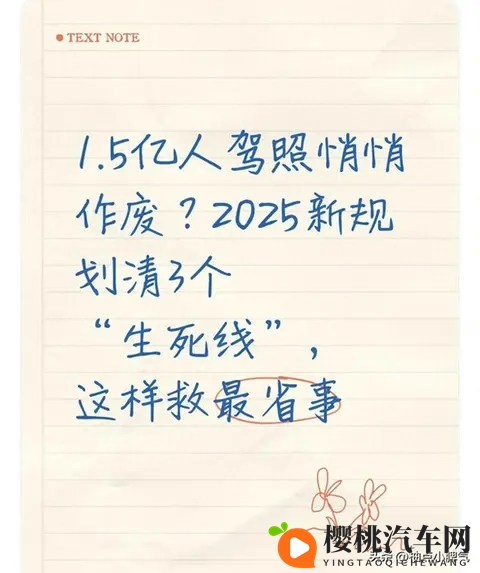 TEXT NOTE
1.5亿人驾照悄悄
作废？2025新规
划清3个
“生死线”，
这样救最省事
樱桃汽车网
YINGTAOQICHEWANG